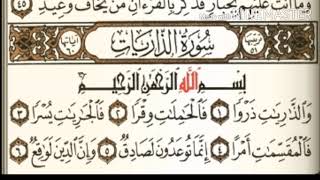 وَمَا أَنتَ عَلَيْهِم بِجَبَّارٍ فَذَكِّرْ بِالْقُرْءَانِ مَن يَخَافُ وَعِيدِ ٤٥
سُورَةُ الذَّارِيَاتِ
بِسْمِ اللَّهِ الرَّحْمَٰنِ الرَّحِيمِ
وَالذَّارِيَاتِ ذَرْوًا ١ فَالْحَامِلَاتِ وِقْرًا ٢ فَالْجَارِيَاتِ يُسْرًا ٣
فَالْمُقَسِّمَاتِ أَمْرًا ٤ إِنَّمَا تُوعَدُونَ لَصَادِقٌ ٥ وَإِنَّ الدِّينَ لَوَاقِعٌ ٦